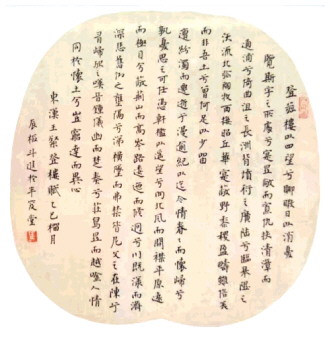 登茲樓以四望兮聊暇日以消憂
覽斯宇之所處兮寔顯敞而寡仇挾清漳而
通浦兮倚曲沮之長洲背墳衍之廣陸兮臨皋隰之
沃流北彌陶牧西接昭丘華寔蔽野黍稷盈疇雖信美
而非吾土兮曾何足以少留
遭紛濁而遷逝兮漫逾紀以迄今情眷眷而懷歸兮
孰憂思之可任憑軒檻以遙望兮向北風而開襟平原遠
而極目兮蔽荊山而高岑路逶迤而修迥兮川既漾而濟
深悲舊鄉之壅隔兮涕橫墜而弗禁昔尼父之在陳兮
有歸歟之嘆音鍾儀幽而楚奏兮莊舄顯而越吟人情
同於懷土兮豈窮達異心
東漢王粲登樓賦乙榴月
辰斗於平堂